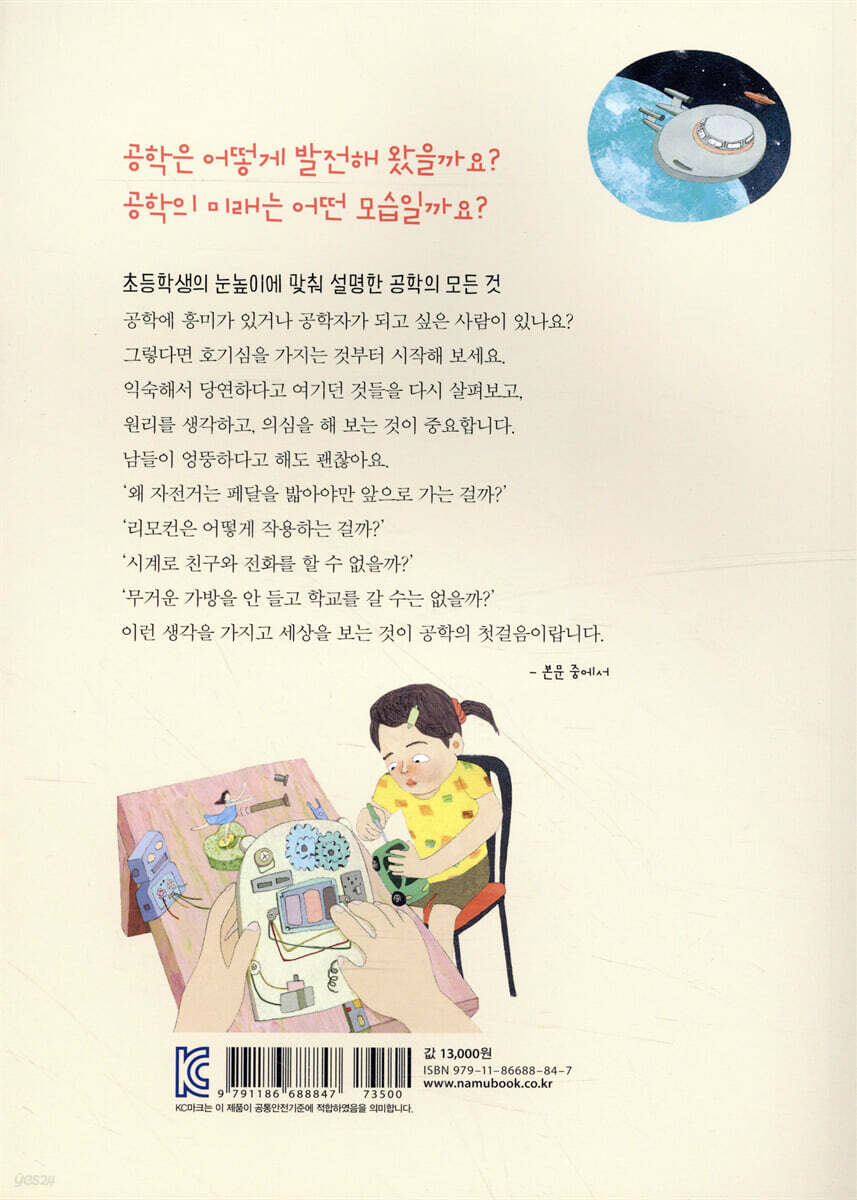 공학은 어떻게 발전해 왔을까요?
공학의 미래는 어떤 모습일까요?
초등학생의 눈높이에 맞춰 설명한 공학의 모든 것
공학에 흥미가 있거나 공학자가 되고 싶은 사람이 있나요?
그렇다면 호기심을 가지는 것부터 시작해 보세요.
익숙해서 당연하다고 여기던 것들을 다시 살펴보고,
원리를 생각하고, 의심을 해 보는 것이 중요합니다.
남들이 엉뚱하다고 해도 괜찮아요.
‘왜 자전거는 페달을 밟아야만 앞으로 가는 걸까?’
‘리모컨은 어떻게 작용하는 걸까?’
‘시계로 친구와 전화를 할 수 없을까?’
‘무거운 가방을 안 들고 학교를 갈 수는 없을까?’
이런 생각을 가지고 세상을 보는 것이 공학의 첫걸음이랍니다.
- 본문 중에서
KC
9 791186 688847
73500
값 13,000원
ISBN 979-11-86688-84-7
www.namubook.co.kr
KC마크는 이 제품이 공통안전기준에 적합하였음을 의미합니다.
yes24